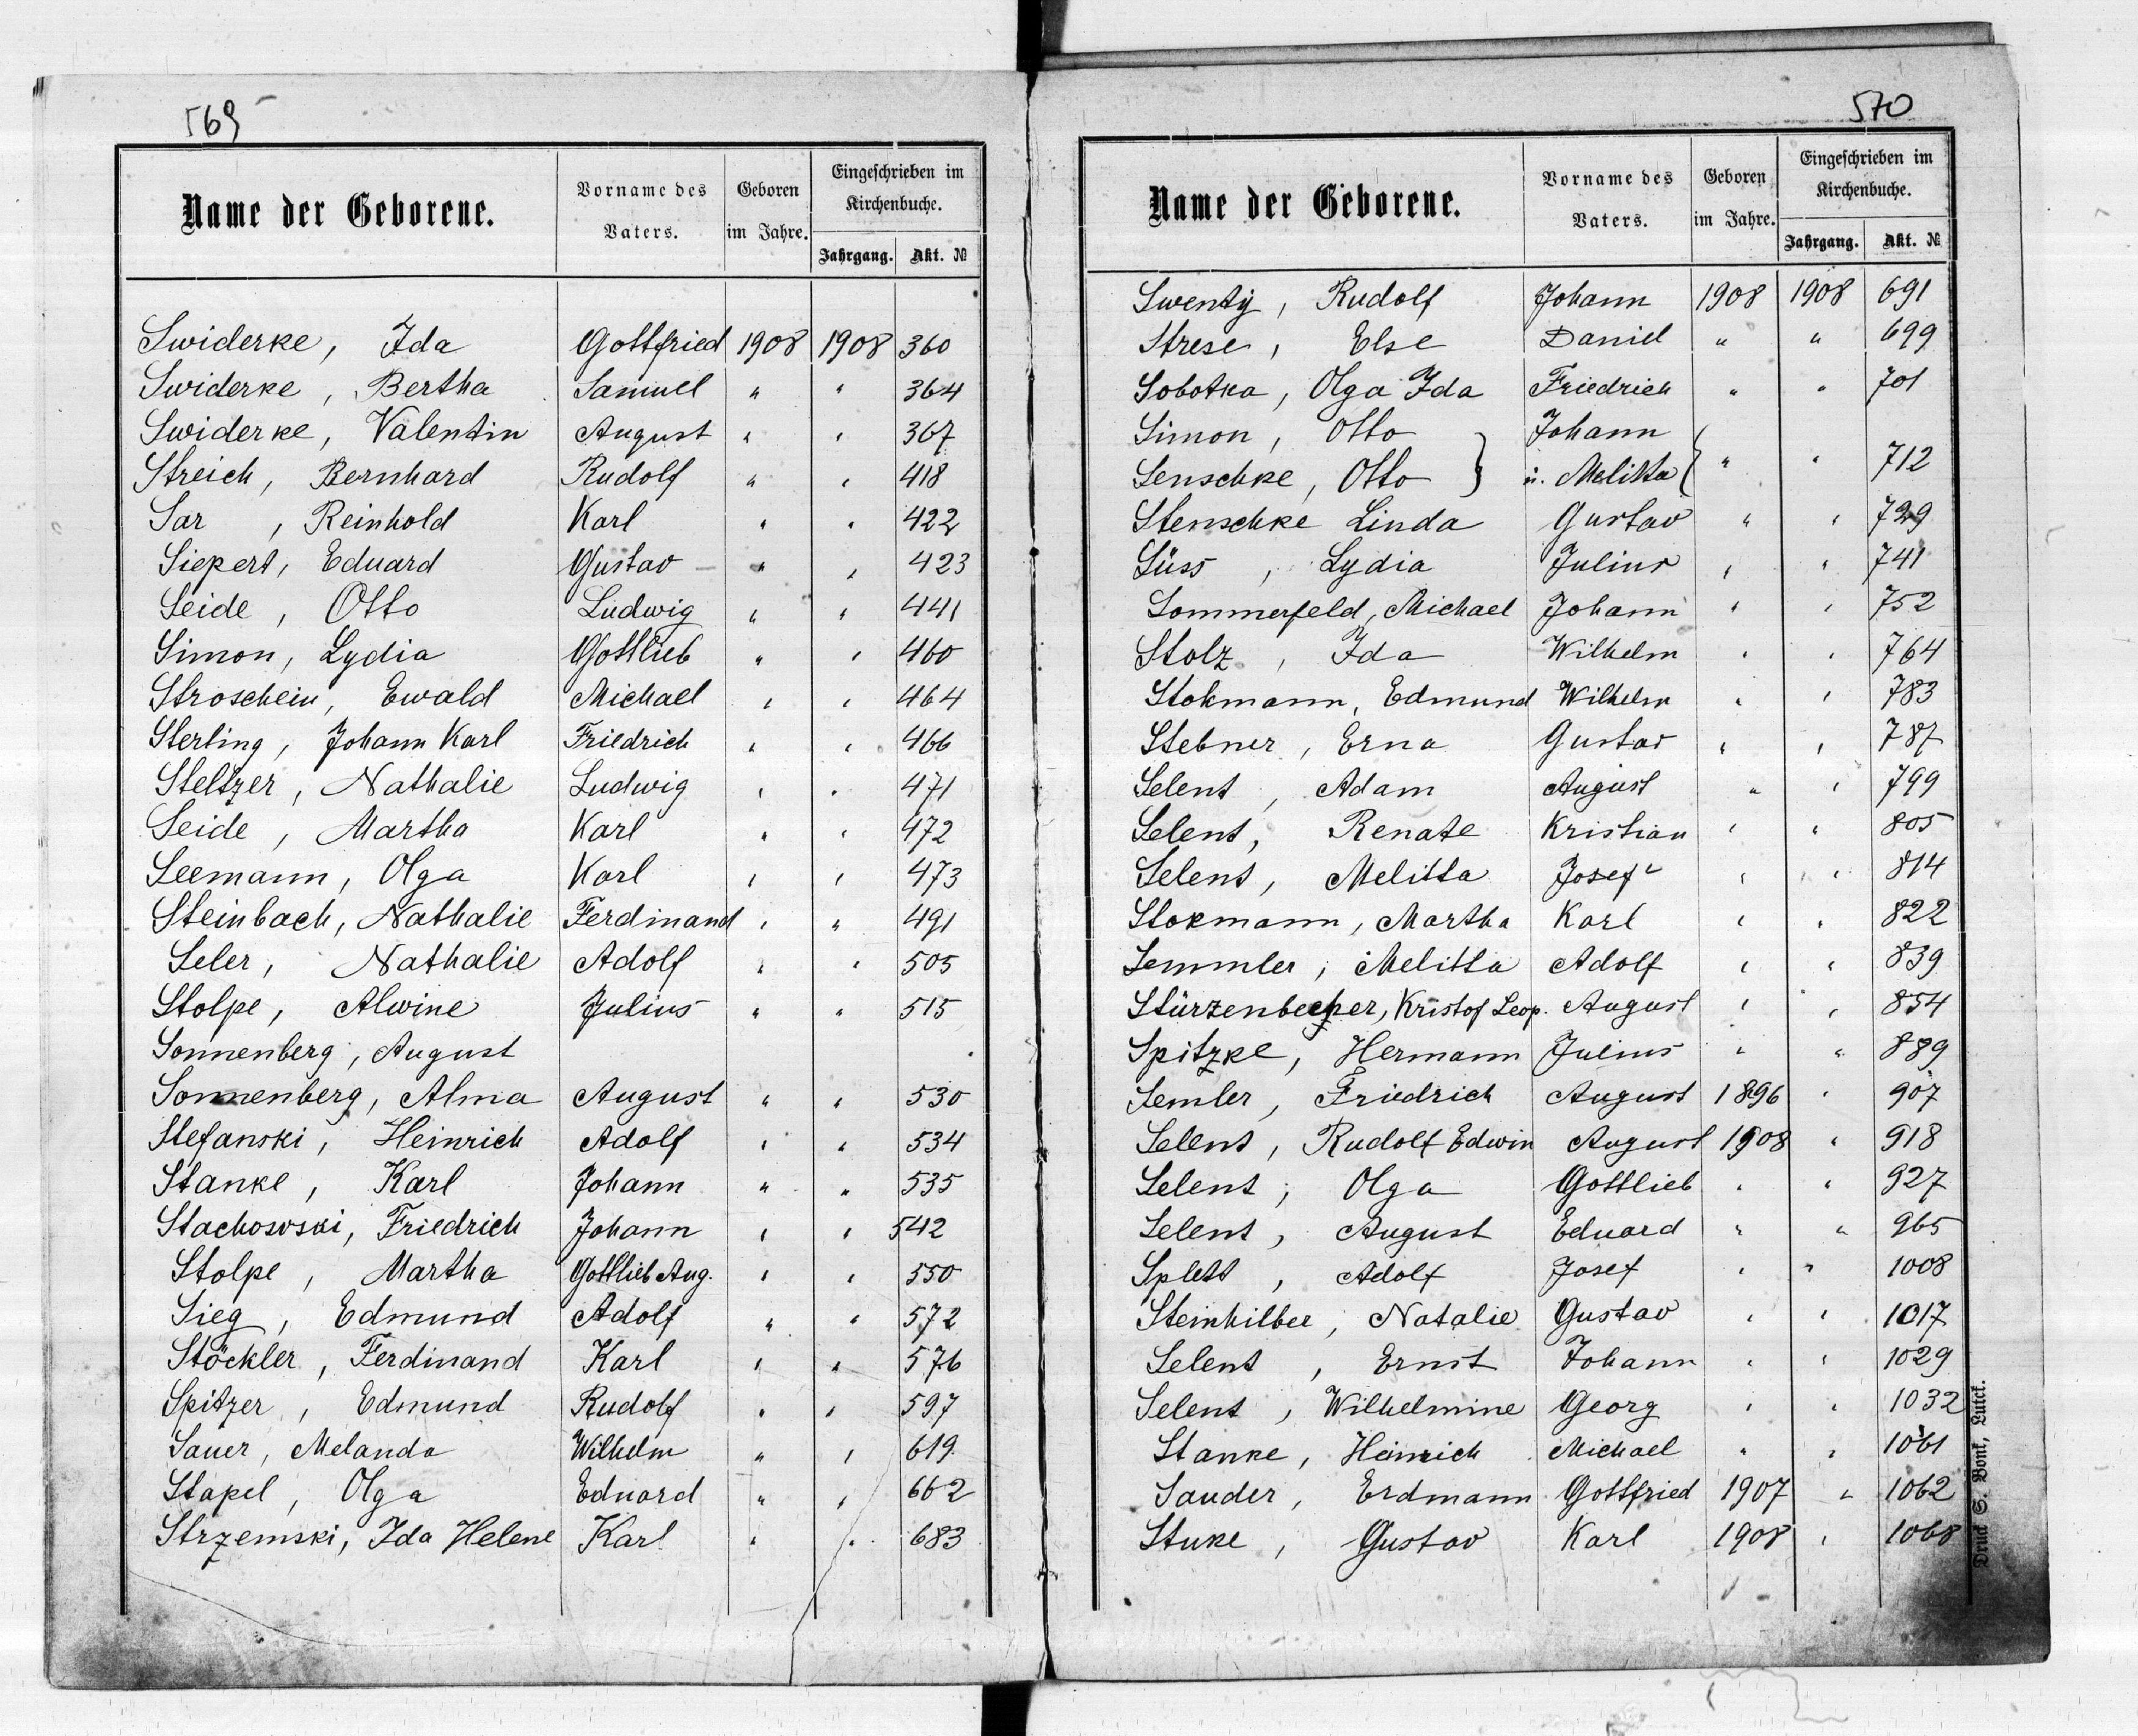 569
Name der Geborene. Vorname des Vaters. Geboren im Jahre. Eingeschrieben im Kirchenbuche. Jahrgang. Akt. №
Swiderke, Ida Gottfried 1908 1908 360
Swiderke, Bertha Samuel " " 364
Swiderke, Valentin August " " 367
Streich, Bernhard Rudolf " " 418
Sar, Reinhold Karl " " 422
Siepert, Eduard Gustav " " 423
Seide, Otto Ludwig " " 441
Simon, Lydia Gottlieb " " 460
Stroschein, Ewald Michael " " 464
Sterling, Johann Karl Friedrich " " 466
Steltzer, Nathalie Ludwig " " 471
Seide, Martha Karl " " 472
Seemann, Olga Karl " " 473
Steinbach, Nathalie Ferdinand " " 491
Seler, Nathalie Adolf " " 505
Stolpe, Alwine Julius " " 515
Sonnenberg, August
Sonnenberg, Alma August " " 530
Stefanski, Heinrich Adolf " " 534
Stanke, Karl Johann " " 535
Stachowski, Friedrich Johann " " 542
Stolpe, Martha Gottlieb Aug. " " 550
Sieg, Edmund Adolf " " 572
Stöckler, Ferdinand Karl " " 576
Spitzer, Edmund Rudolf " " 597
Sauer, Melanda Wilhelm " " 619
Stapel, Olga Eduard " " 662
Strzemski, Ida Helene Karl " " 683
570
Name der Geborene. Vorname des Vaters. Geboren im Jahre. Eingeschrieben im Kirchenbuche. Jahrgang. Akt. №
Swenty, Rudolf Johann 1908 1908 691
Strese, Else Daniel " " 699
Sobotka, Olga Ida Friedrich " " 701
Simon, Otto Johann
Senschke, Otto u. Melitta " " 712
Stenschke Linda Gustav " " 729
Süss, Lydia Julius " " 741
Sommerfeld, Michael Johann " " 752
Stolz, Ida Wilhelm " " 764
Stokmann, Edmund Wilhelm " " 783
Stebner, Erna Gustav " " 787
Selent, Adam August " " 799
Selent, Renate Kristian " " 805
Selent, Melitta Josef " " 814
Stokmann, Martha Karl " " 822
Semmler, Melitta Adolf " " 839
Stürzenbecher, Kristof Leop. August " " 854
Spitzke, Hermann Julius " " 889
Semler, Friedrich August 1896 " 907
Selent, Rudolf Edwin August 1908 " 918
Selent, Olga Gottlieb " " 927
Selent, August Eduard " " 965
Splett, Adolf Josef " " 1008
Steinhilber, Natalie Gustav " " 1017
Selent, Ernst Johann " " 1029
Selent, Wilhelmine Georg " " 1032
Stanke, Heinrich Michael " " 1061
Sauder, Erdmann Gottfried 1907 " 1062
Stuke, Gustav Karl 1908 " 1068
Druck S. Bonk, Luck.